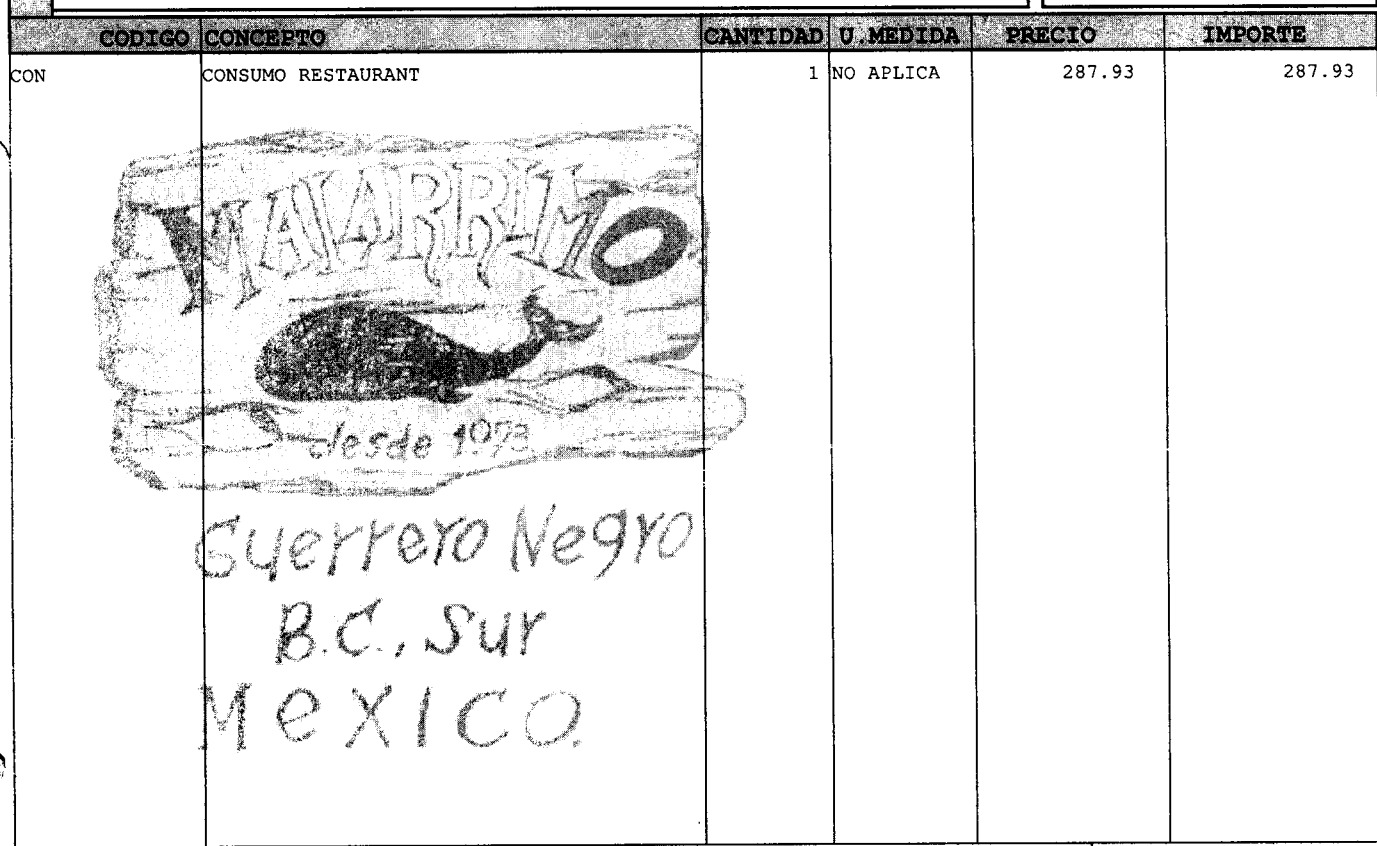 CODIGO CONCEPTO CANTIDAD U.MEDIDA PRECIO IMPORTE
CON CONSUMO RESTAURANT 1 NO APLICA 287.93 287.93
MALARRIMO
desde 1973
Guerrero Negro
B.C., Sur
MeXICO.